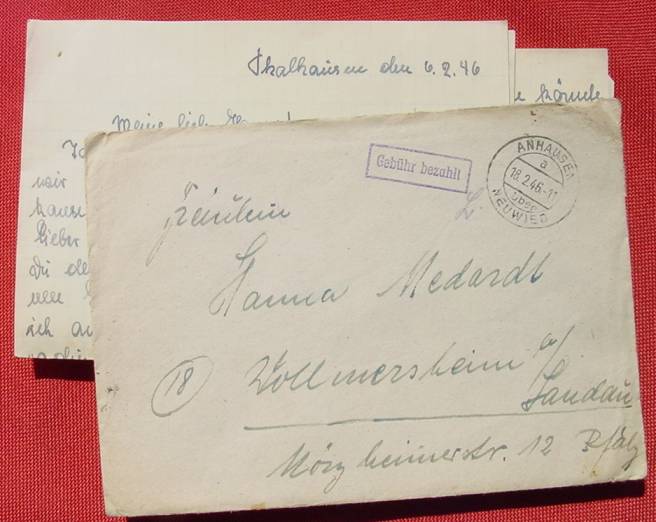 Thalhausen den 6.2.46
Meine lieb
Ic
wir
hause
lieber
Du de
ich au
Gebühr bezahlt
ANHAUSEN
a
18.2.46.-11
über
NEUWIED
Fräulein
Hanna Medardt
(18) Wollmersheim a/
Landau
Mörzheimerstr. 12 Pfalz